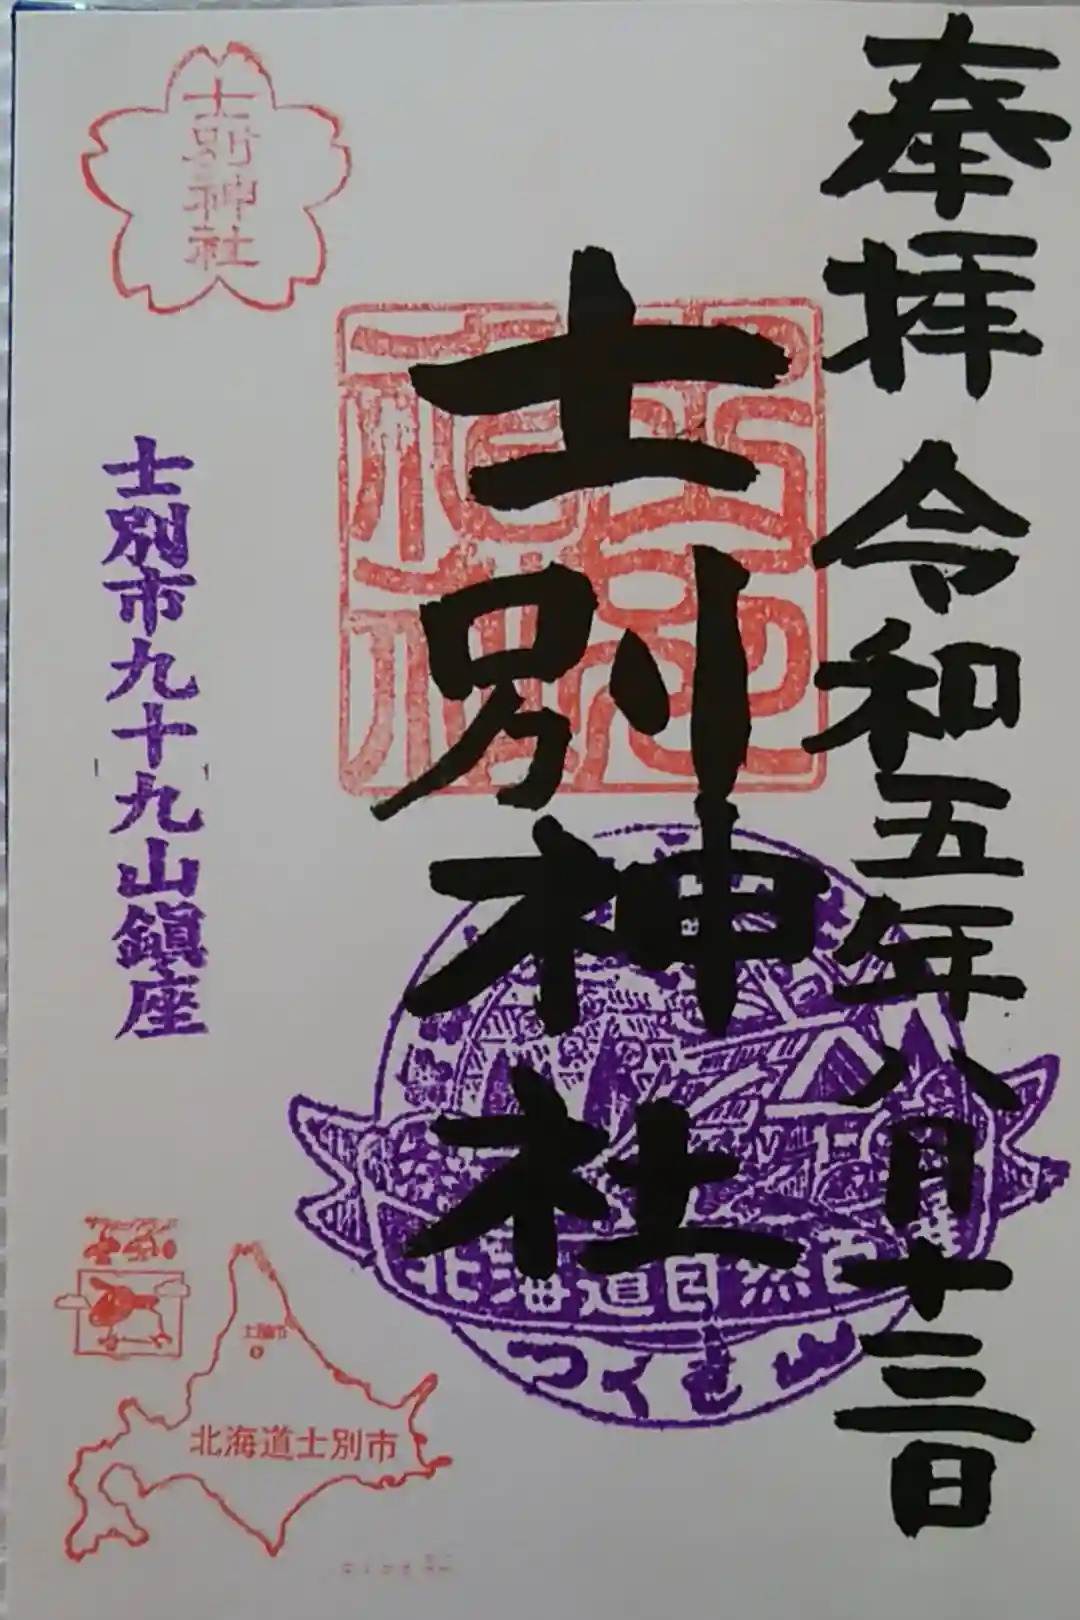 奉拝 令和五年八月十三日
士別神社
士別神社
士別市九十九山鎮座
北海道自然百選
つくも山
士別市
北海道士別市